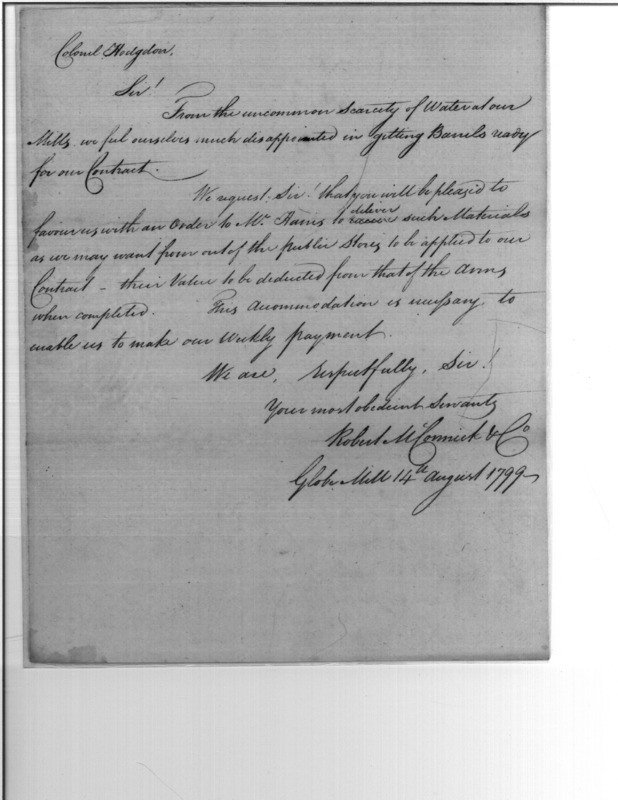 Colonel Hodgdon,
Sir!
From the uncommon scarcity of Water at our
Mills, we feel ourselves much disappointed in getting Barrels ready
for our Contract.
We request, Sir! that you will be pleased to
favour us with an Order to Mr. Harris to deliver such Materials
as we may want from out of the public Stores, to be applied to our
Contract – their Value to be deducted from that of the Arms
when completed. This Accommodation is necessary, to
enable us to make our Weekly payment.
We are, respectfully, Sir!
Your most obedient Servants
Robert McCormick & Co
Globe Mill 14th August 1799